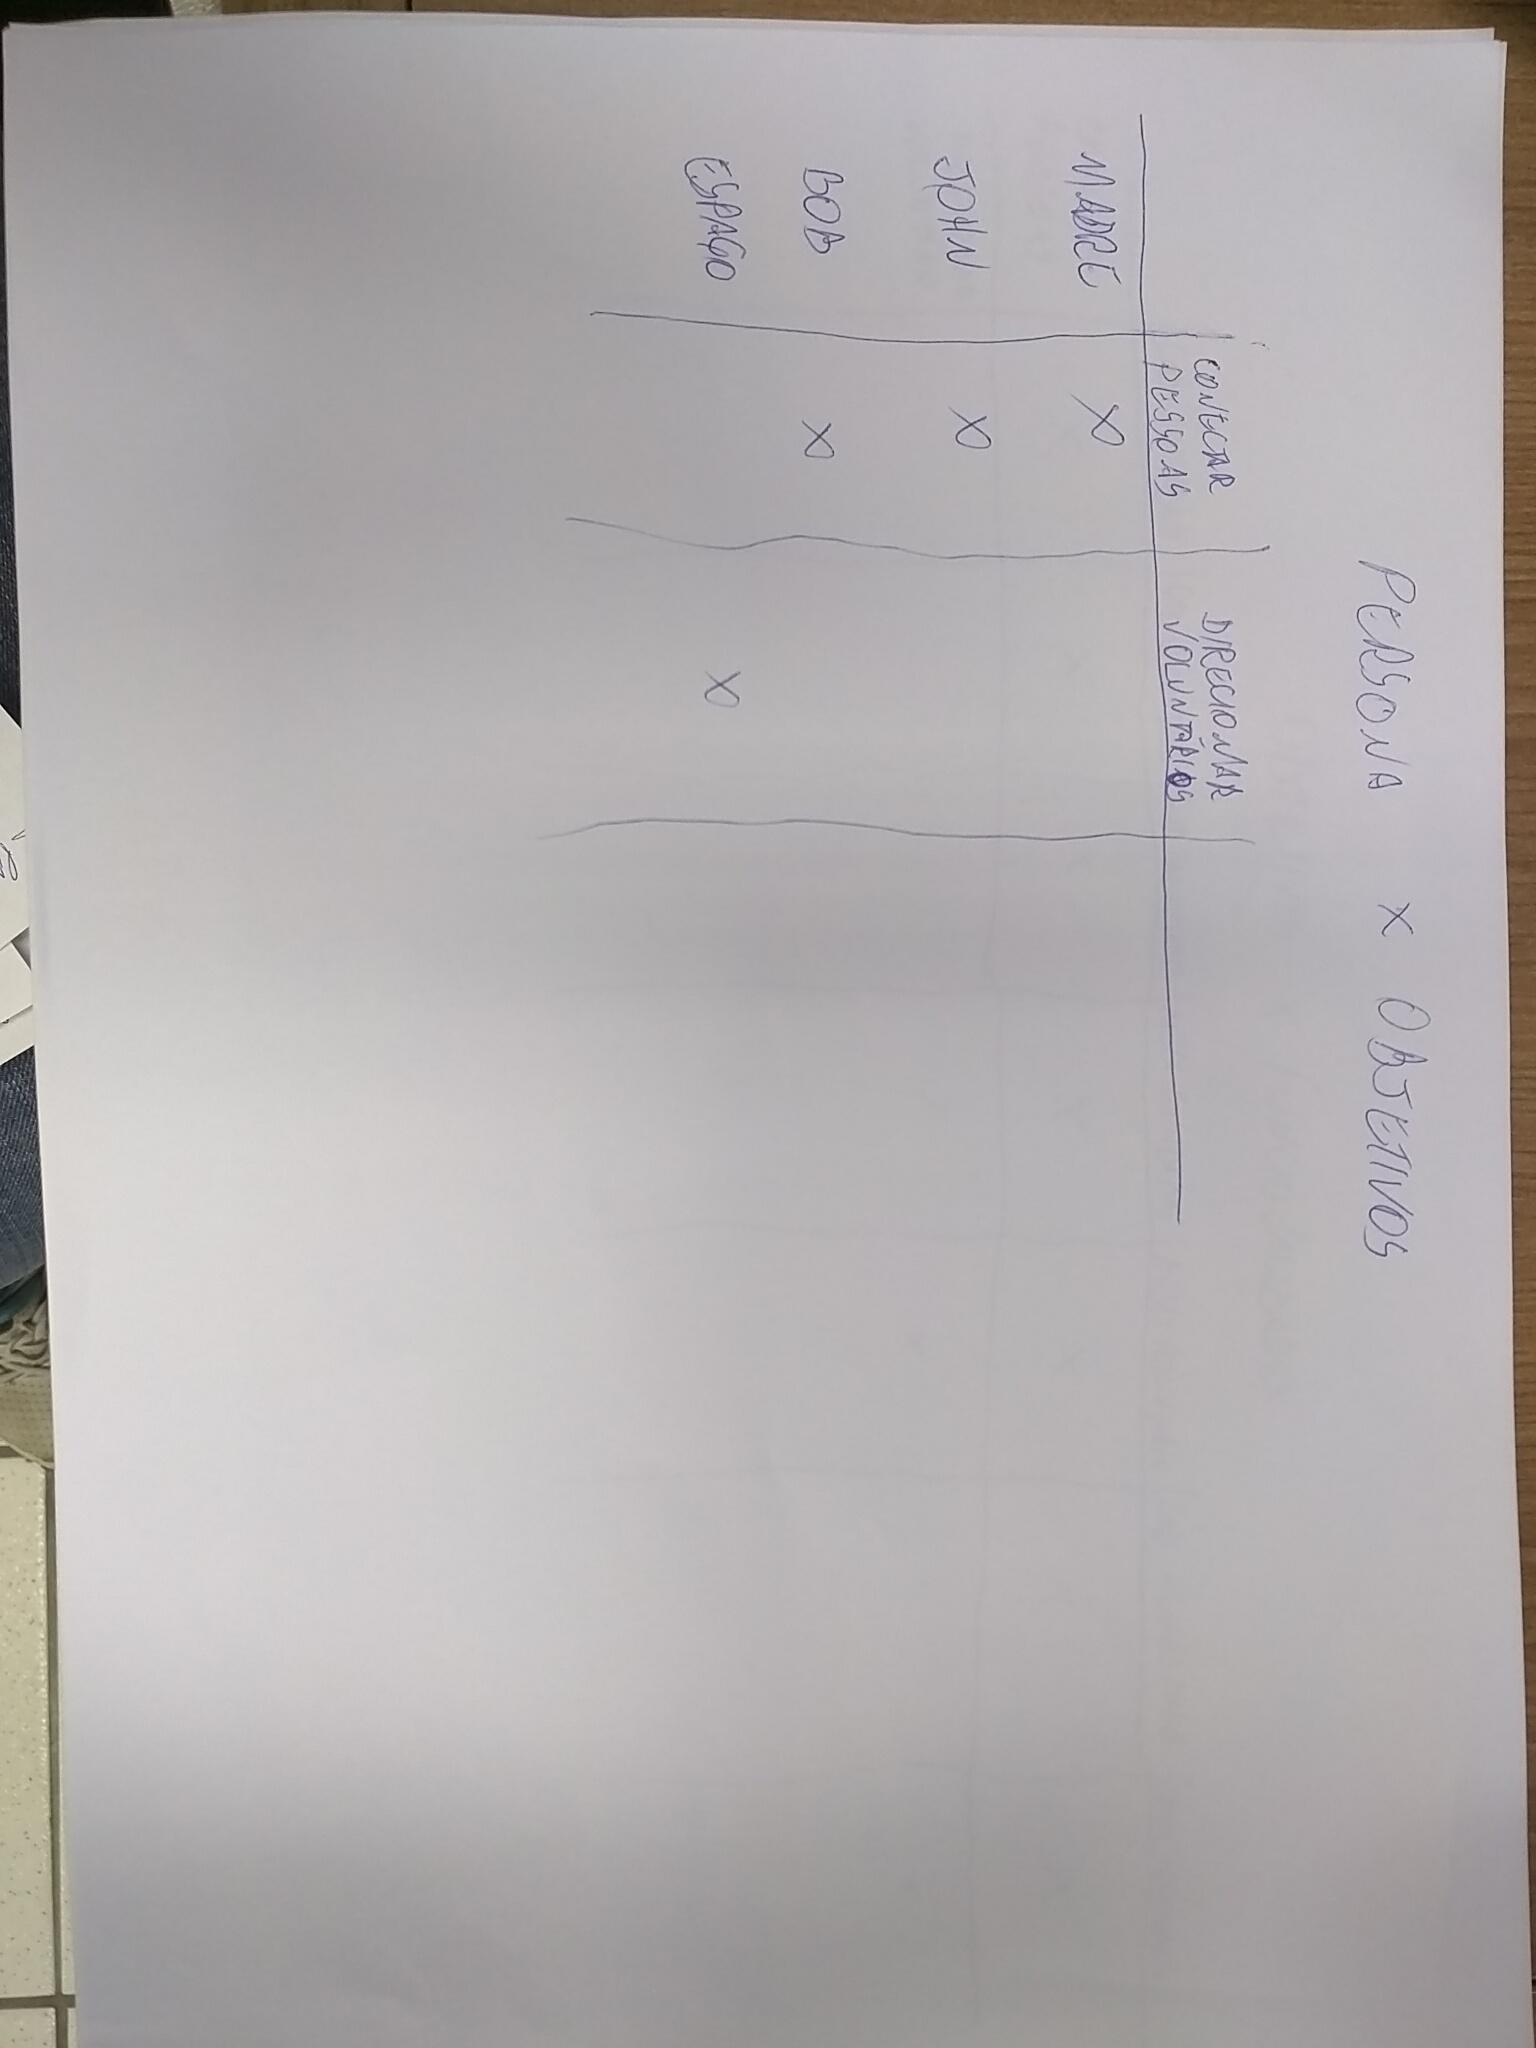 PERSONA X OBJETIVOS
CONECTAR DIRECIONAR
PESSOAS VOLUNTÁRIOS
MADRE X
JOHN X
BOB X
ESPAÇO X